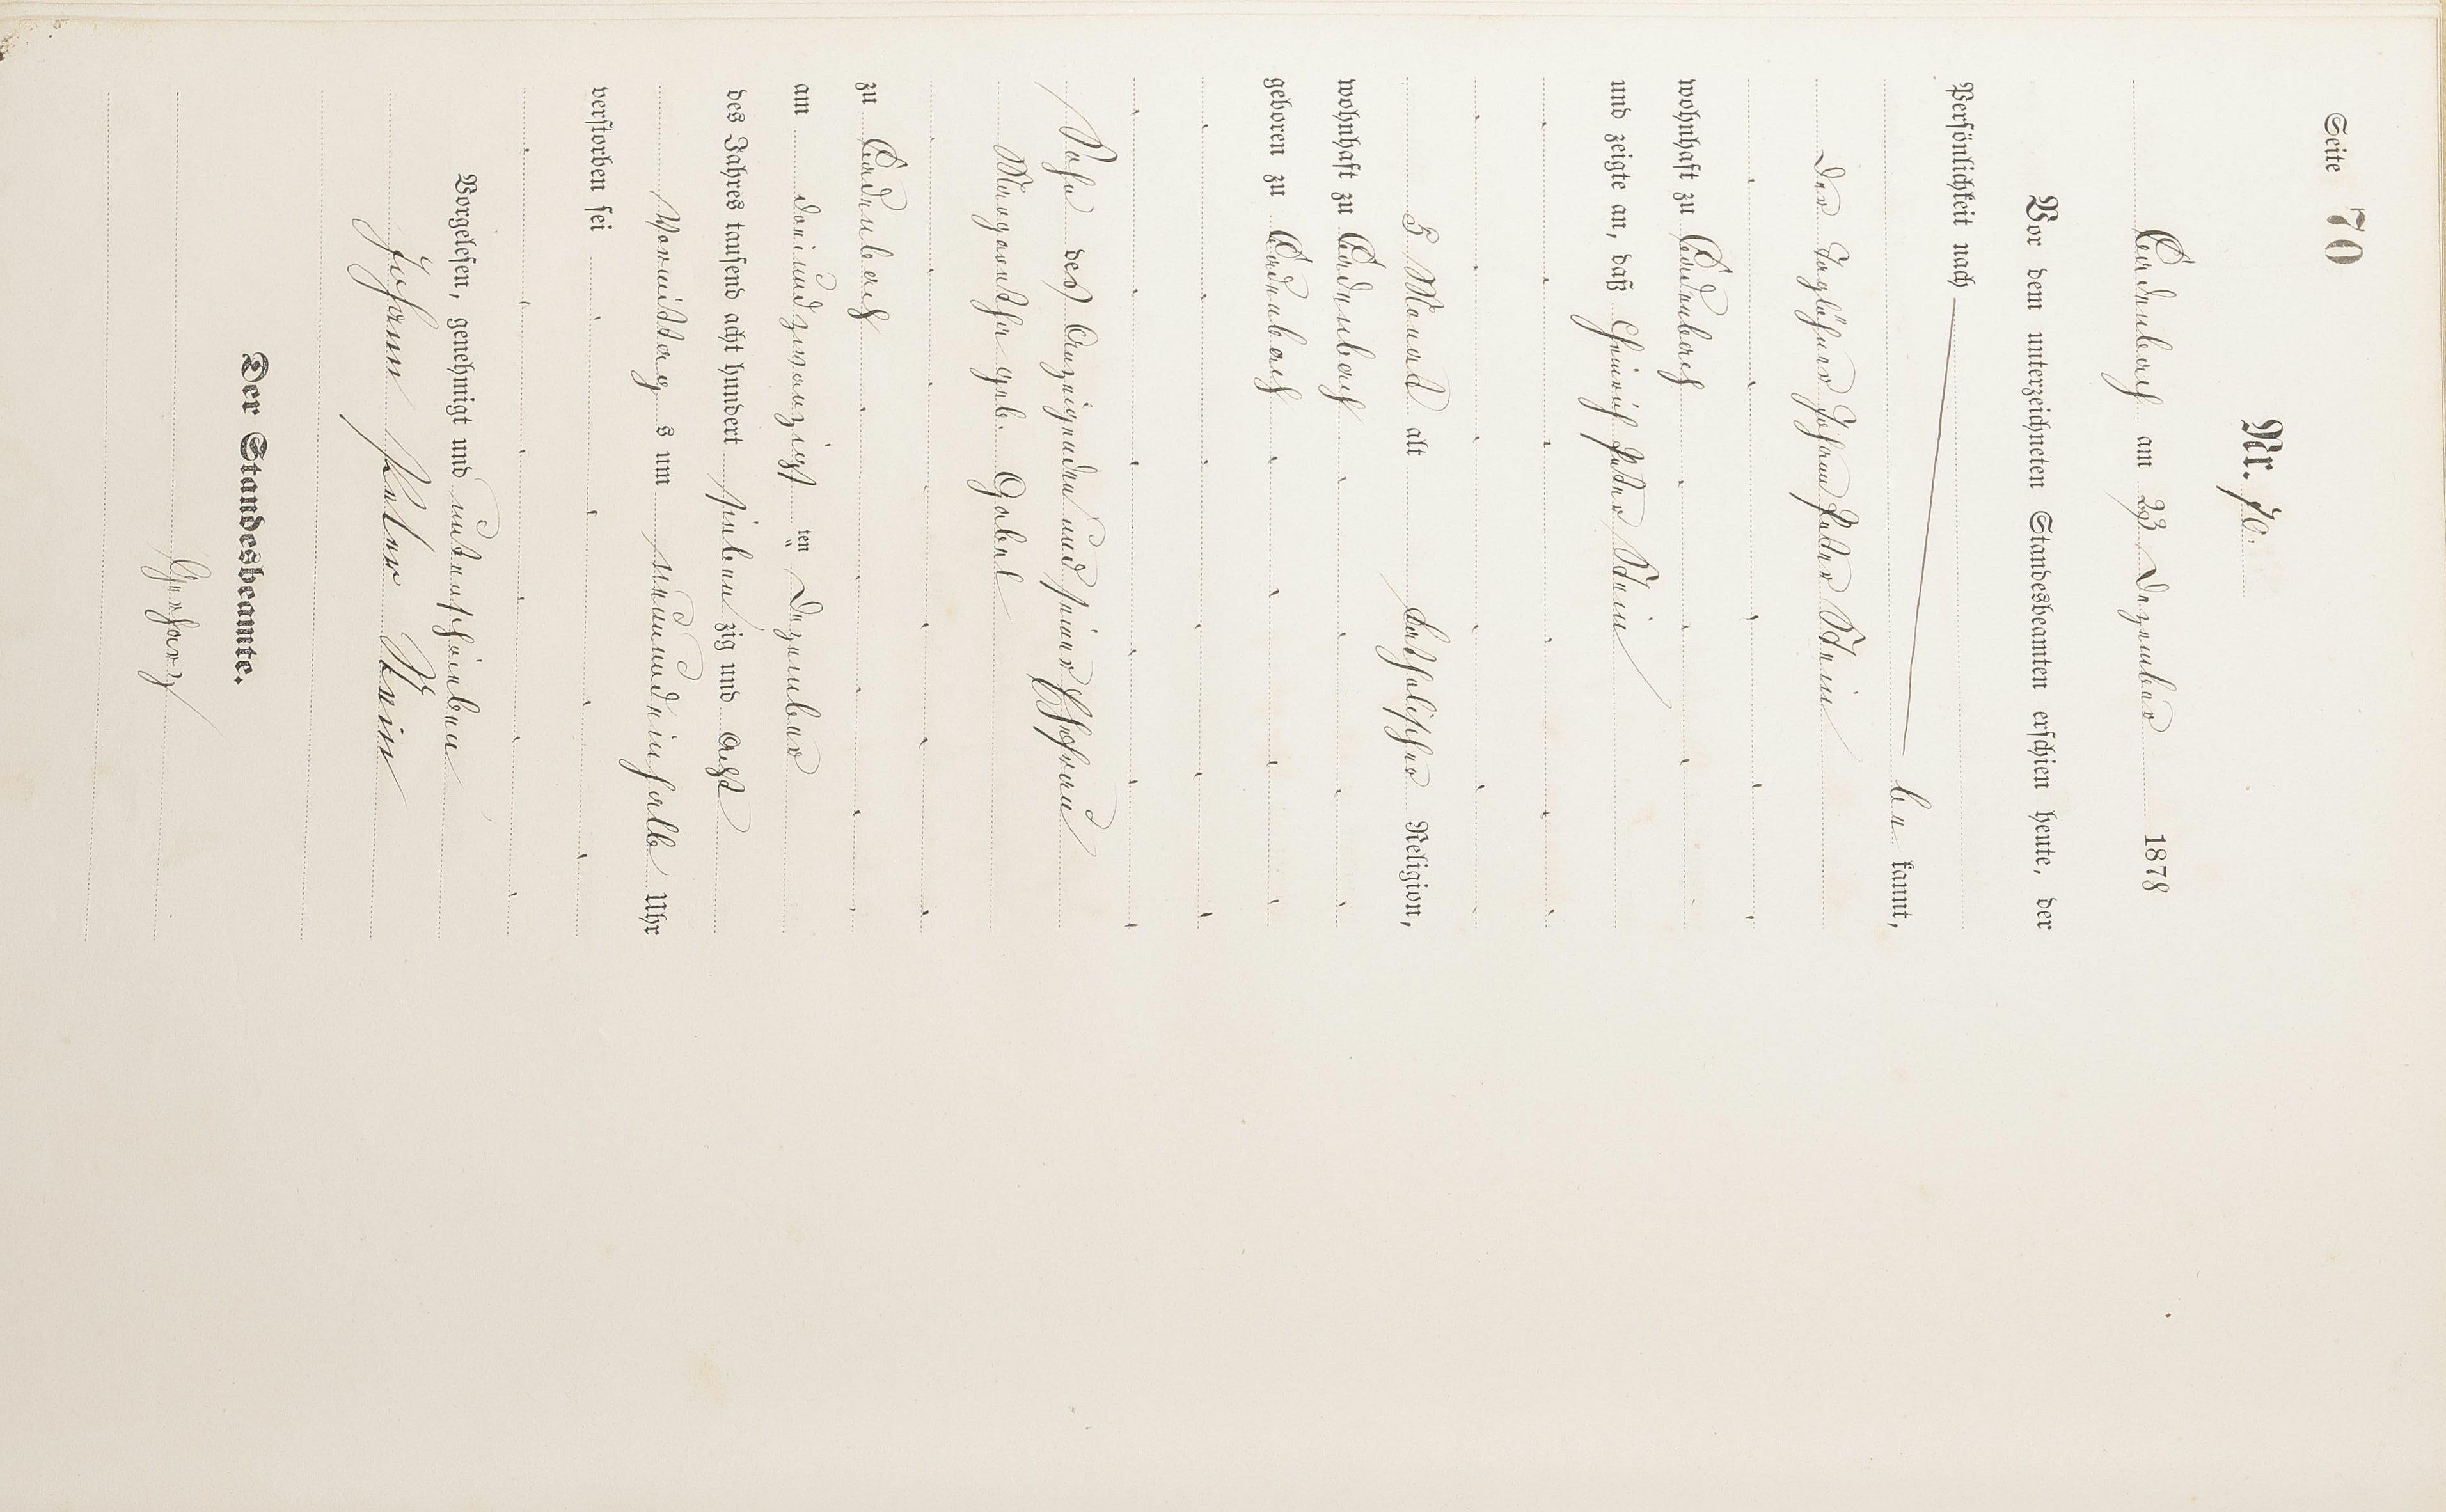 Seite 70
Nr. 70.
Cadenbach am 23 Dezember 1878
Vor dem unterzeichneten Standesbeamten erschien heute, der
Persönlichkeit nach
be kannt,
der Taglöhner Johann Peter Stein
wohnhaft zu Cadenbach
und zeigte an, daß Heinrich Peter Stein
5 Monat alt katholischer Religion,
wohnhaft zu Cadenbach
geboren zu Cadenbach
Sohn des Anzeigenden und seiner Ehefrau
Margaretha geb. Gobel
zu Cadenbach
am dreiundzwanzigst ten Dezember
des Jahres tausend acht hundert siebenzig und acht
Vormittag s um neunundeinhalb Uhr
verstorben sei
Vorgelesen, genehmigt und unterschrieben
Johann Peter Stein
Der Standesbeamte.
Gerharz